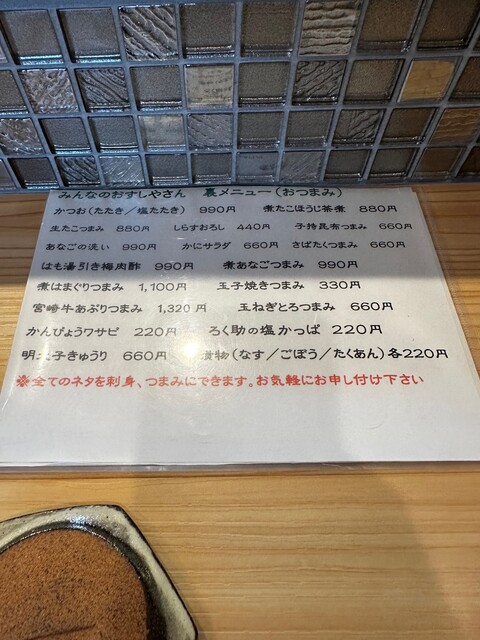 みんなのおすしやさん 裏メニュー(おつまみ)
かつお(たたき/塩たたき) 990円 煮たこほうじ茶煮 880円
生たこつまみ 880円 しらすおろし 440円 子持昆布つまみ 660円
あなごの洗い 990円 かにサラダ 660円 さばたくつまみ 660円
はも湯引き梅肉酢 990円 煮あなごつまみ 990円
煮はまぐりつまみ 1,100円 玉子焼きつまみ 330円
宮崎牛あぶりつまみ 1,320円 玉ねぎとろつまみ 660円
かんぴょうワサビ 220円 ろく助の塩かっぱ 220円
明太子きゅうり 660円 漬物(なす/ごぼう/たくあん)各220円
※全てのネタを刺身、つまみにできます。お気軽にお申し付け下さい